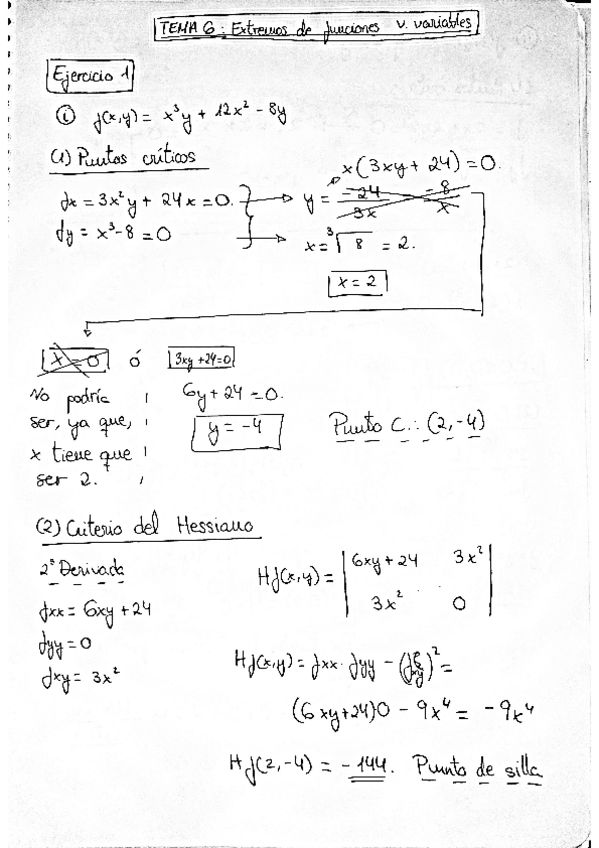 TEMA 6: Extremos de funciones v. variables
Ejercicio 1
① f(x,y) = x³y + 12x² - 8y
(1) Puntos críticos
x(3xy + 24) = 0.
fx = 3x²y + 24x = 0. → y = -24/3x -8/x
fy = x³-8 = 0 → x = ³√8 = 2.
x = 2
x = 0 ó 3xy +24=0
No podría
ser, ya que,
x tiene que
ser 2.
6y + 24 = 0.
y = -4
Punto C.: (2,-4)
(2) Criterio del Hessiano
2ª Derivada
fxx = 6xy + 24
fyy = 0
fxy = 3x²
Hf(x,y) = | 6xy + 24 3x² |
| 3x² 0 |
Hf(x,y) = fxx · fyy - (fxy)² =
(6xy+24)0 - 9x⁴ = -9x⁴
Hf(2,-4) = -144. Punto de silla